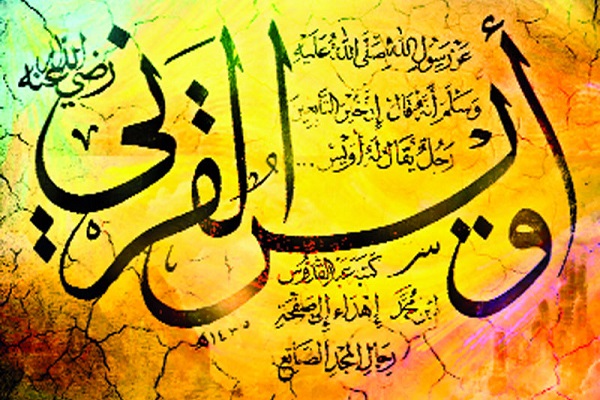 أويس القرني
رضي الله عنه
عن رسول الله صلى الله عليه
وسلم أنه قال إن خير التابعين
رجل يقال له أويس ...
كتبه عبد القدوس
ابن محمد إهداء إلى صفحة
رجال المجد الضائع
١٤٣٥هـ